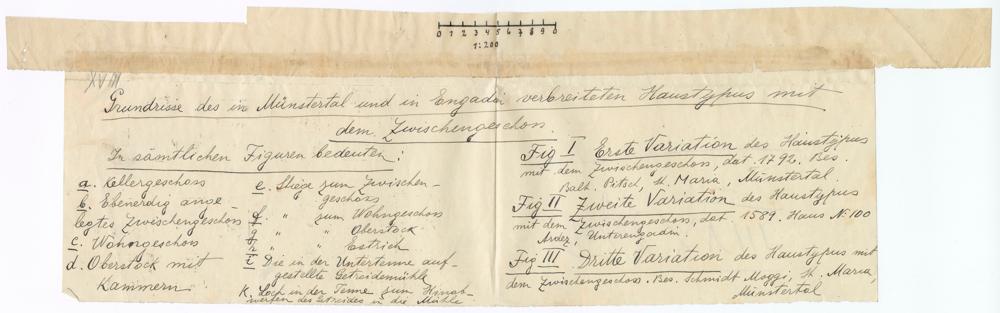 0 1 2 3 4 5 6 7 8 9 0
1:200
XVIII
Grundrisse des in Münstertal und in Engadin verbreiteten Haustypus mit
dem Zwischengeschoss.
In sämtlichen Figuren bedeuten:
a. Kellergeschoss
b. Ebenerdig ange-
legtes Zwischengeschoss
c. Wohngeschoss
d. Oberstock mit
Kammern
e. Stiege zum Zwischen-
geschoss
f. " zum Wohngeschoss
g " " Oberstock
h " " Estrich
i Die in der Untertenne auf-
gestellte Getreidemühle
K. Loch in der Tenne zum Hinab-
werfen des Getreides in die Mühle
Fig I Erste Variation des Haustypus
mit dem Zwischengeschoss, dat. 1792. Bes.
Balth. Pitsch, St. Maria, Münstertal.
Fig II Zweite Variation des Haustypus
mit dem Zwischengeschoss, dat 1589. Haus № 100
Ardez, Unterengadin.
Fig III. Dritte Variation des Haustypus mit
dem Zwischengeschoss. Bes. Schmidt Moggi, St. Maria,
Münstertal